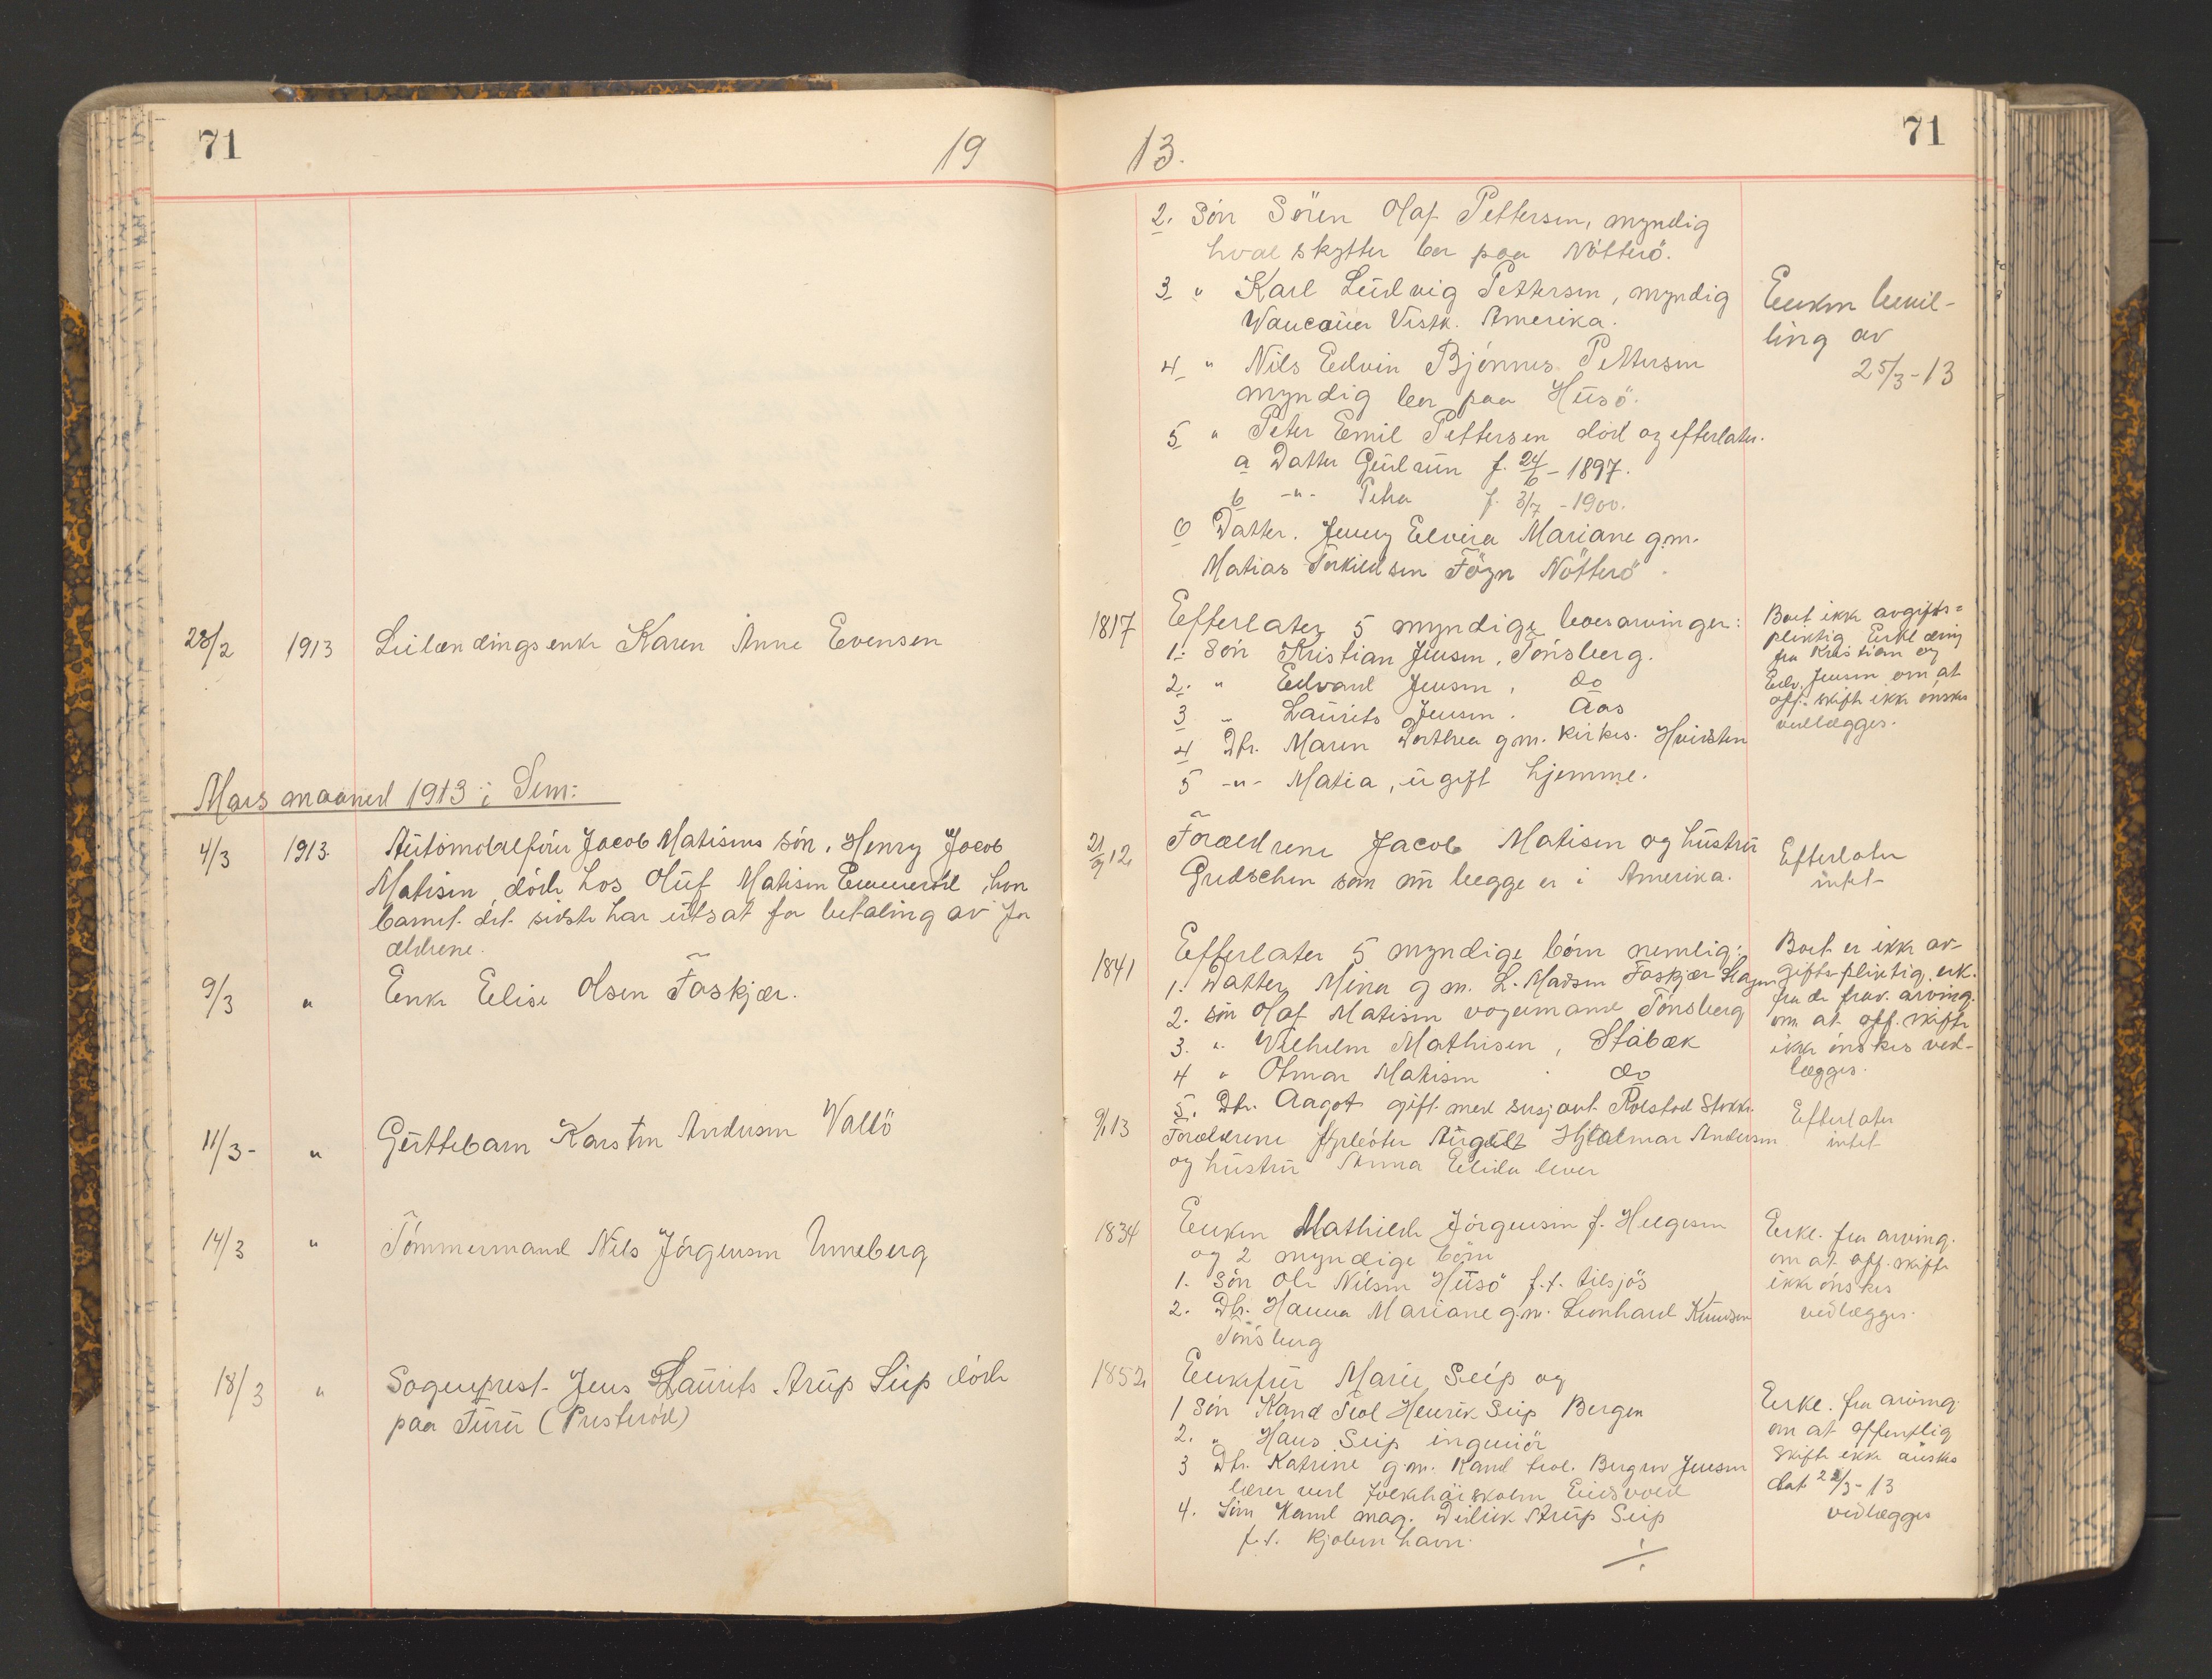 71
19
28/2 1913 Leilændingsenke Karen Anne Evensen
Mars maaned 1913 i Sem:
4/3 1913. Automobilfører Jacob Matisens sön, Henry Jacob
Matisen, döde hos Oluf Matisen, hvor
barnet det sidste har utsat for betaling av for
ældrene.
9/3 " Enke Elise Olsen Taskjær.
11/3 - " Guttebarn Karsten Andersen Vallö
14/3 " Tömmermand Nils Jörgensen Unneberg
18/3 " Sogneprest Jens Laurits Arup Seip döde
paa Furu (Presteröd)
13.
71
2. Sön Sören Olaf Pettersen, myndig
hvalskytter bor paa Nötterö.
3 " Karl Ludvig Pettersen, myndig
Wancouver Vestk. Amerika.
4 " Nils Edvin Bjönnes Pettersen
myndig bor paa Husö.
5 " Peter Emil Pettersen död og efterlater.
a Datter Gudrun f. 24/6 - 1897.
b -"- Petra f. 3/7 - 1900.
6 Datter. Jenny Elvira Mariane g.m.
Matias Torkildsen Föyn Nötterö.
Enken bevil-
ling av
25/3-13
1817 Efterlater 5 myndige livsarvinger:
1. Sön Kristian Jensen, Tönsberg.
2. " Edvard Jensen, do
3 " Laurits Jensen. Aas
4 Dtr. Maren Dorthea g.m. Kirkes. Hvidsten
5 -"- Matia, ugift hjemme.
Boet ikke avgifts=
pliktig Erklæring
fra Kristian og
Edv. Jensen om at
off. skifte ikke önskes
vedlægges.
21/9 12 Forældrene Jacob Matisen og hustru
Gudschen som nu begge er i Amerika.
Efterlater
intet
1841 Efterlater 5 myndige börn nemlig:
1. Datter Mina g m. L. Madsen Taskjær Slagen
2. Sön Olaf Matisen vognmand Tönsberg
3. " Wilhelm Mathisen, Stabæk
4 " Otmar Matisen do
5. Dtr. Aagot gift med sersjant Rolstad Stokke.
Boet er ikke av-
giftspliktig, erk.
fra de frav. arving.
om at off. skifte
ikke önskes ved-
lægges.
9/1 13 Forældrene August Hjalmar Andersen
og hustru Anna Elida lever
Efterlater
intet
1834 Enken Mathilde Jörgensen f. Helgesen
og 2 myndige börn
1. Sön Ole Nilsen Husö f.t. tilsjös
2. Dtr. Hanna Mariane g.m. Leonhard Knudsen
Tönsberg
Erkl. fra arving.
om at off. skifte
ikke önskes
vedlægges.
1852 Enkefru Marie Seip og
1 Sön Kand Teol Henrik Seip Bergen
2. " Hans Seip ingeniör
3 Dtr. Katrine g.m. Kand teol. Jensen
lærer ved folkehöiskolen Eidsvold
4. Sön Kand mag. Didrik Arup Seip
f.t. Kjöbenhavn.
Erkl. fra arving.
om at offentlig
skifte ikke önskes
dat 22/3-13
vedlægges